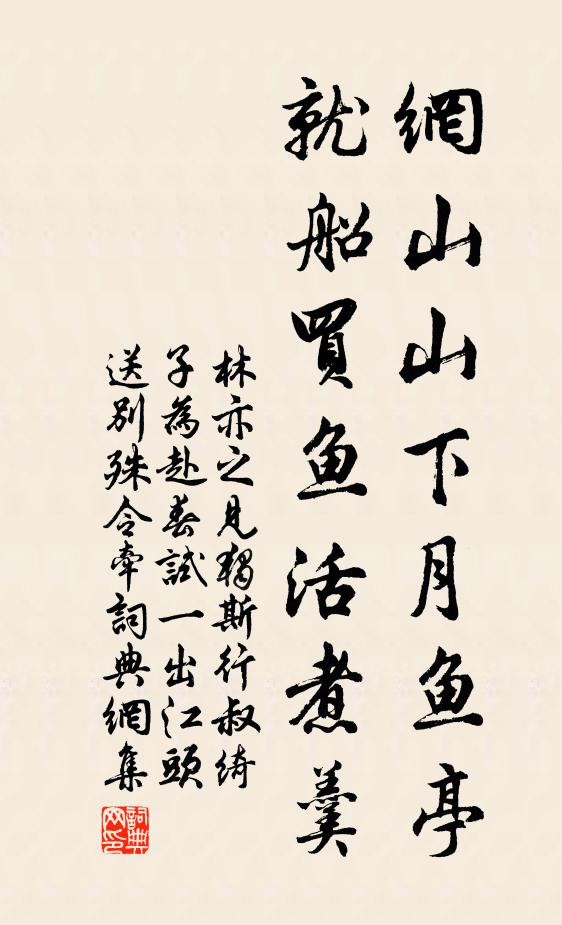 網山山下月魚亭
就船買魚活煮羹
林亦之見獨斯行叔綺
子為赴春試一出江頭
送別殊令牽詞典網集
詞典
网印